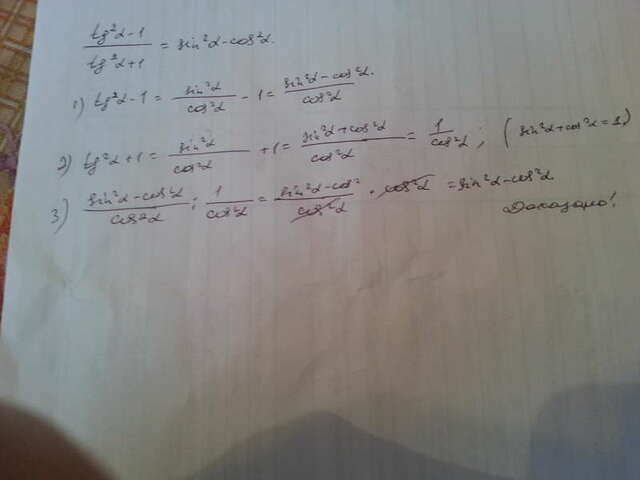 tg²α-1 / tg²α+1 = sin²α-cos²α.
1) tg²α-1 = sin²α / cos²α - 1 = sin²α-cos²α / cos²α.
2) tg²α+1 = sin²α / cos²α +1 = sin²α+cos²α / cos²α = 1 / cos²α; (sin²α+cos²α=1)
3) sin²α-cos²α / cos²α : 1 / cos²α = sin²α-cos² / cos²α · cos²α = sin²α-cos²α
Доказано!